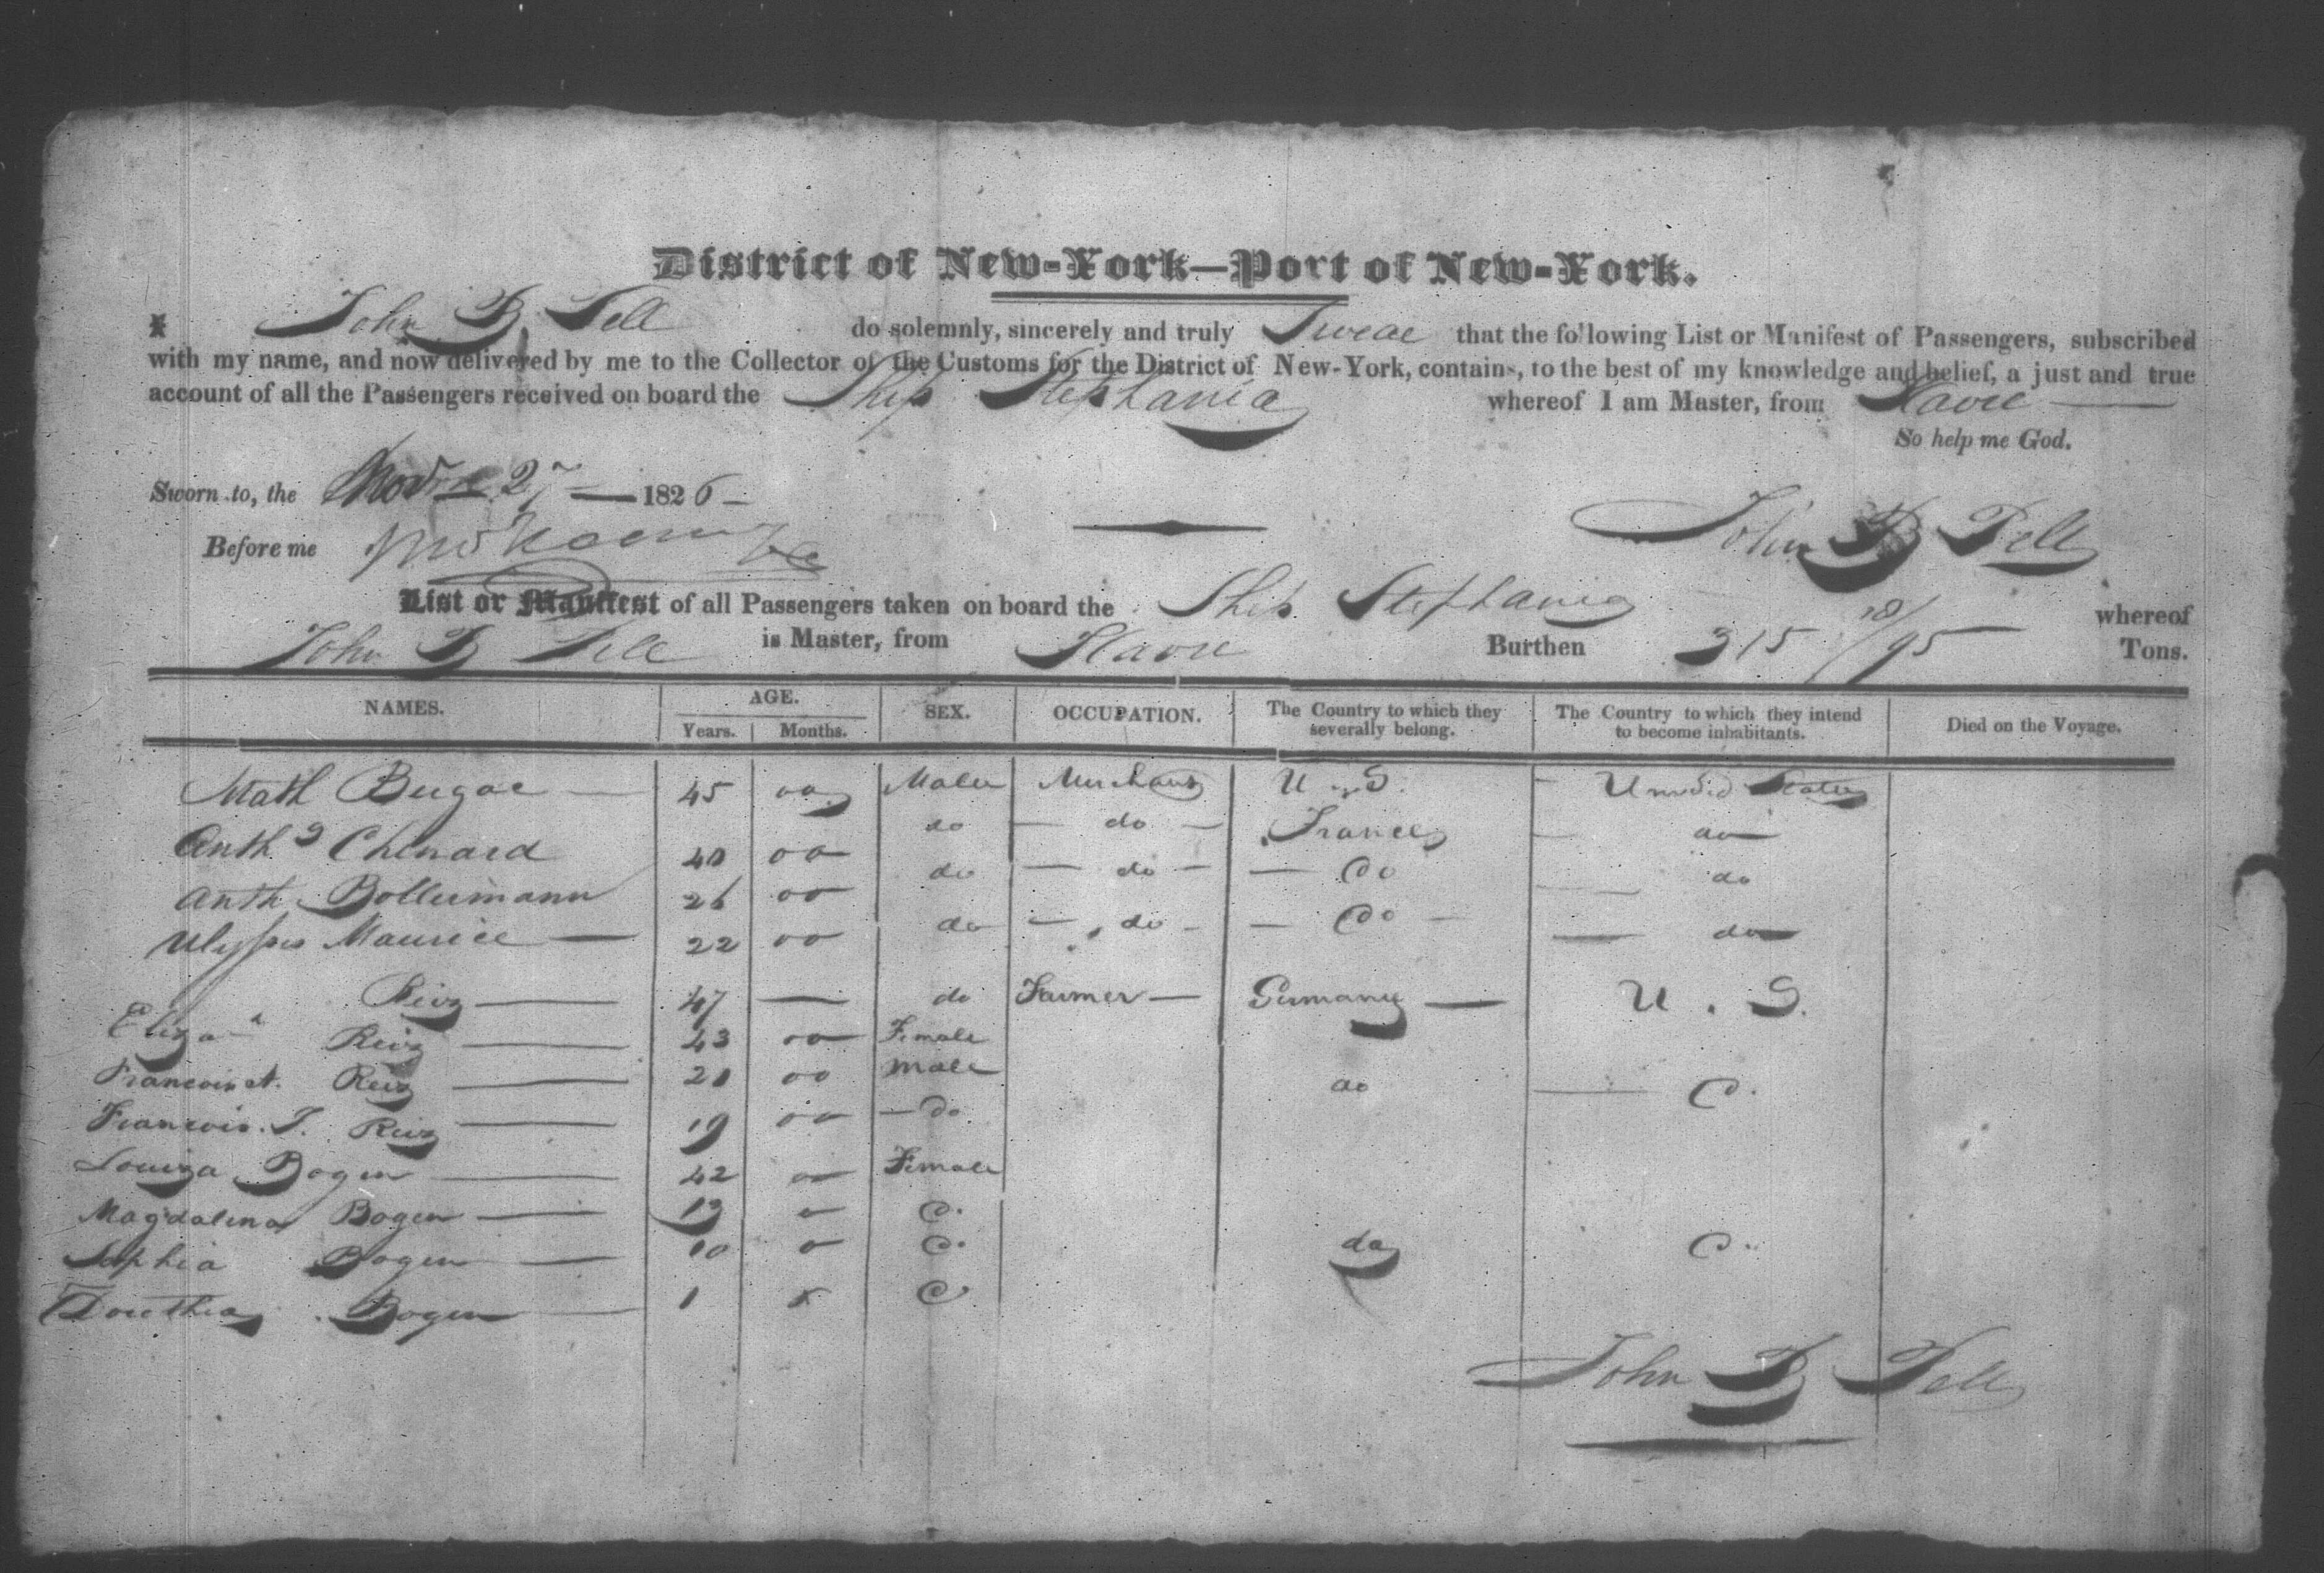 District of New-York—Port of New-York.
I John B. Pell do solemnly, sincerely and truly Swear that the following List or Manifest of Passengers, subscribed
with my name, and now delivered by me to the Collector of the Customs for the District of New-York, contains, to the best of my knowledge and belief, a just and true
account of all the Passengers received on board the Ship Stephania whereof I am Master, from Havre
So help me God.
Sworn to, the 27 1826
Before me
John B Pell
List or Manifest of all Passengers taken on board the Ship Stephania whereof
John B Pell is Master, from Havre Burthen 315 /95 Tons.
NAMES. AGE. Years. Months. SEX. OCCUPATION. The Country to which they severally belong. The Country to which they intend to become inhabitants. Died on the Voyage.
Math 45 oo Male Merchant U S. United States
Anthy Chenard 40 oo do do France do
Anth Bollermann 26 oo do do Do do
Ulysses Maurice 22 oo do do Do do
Reiz 47 — do Farmer Germany U. S.
Eliza Reiz 43 oo Female
Francois A. Reiz 21 oo male do
Francois. J. Reiz 19 oo do
Louiza Bogen 42 o Female
Magdalena Bogen 13 o
Sophia Bogen 10 o do
Dorethea Bogen 1
John B Pell